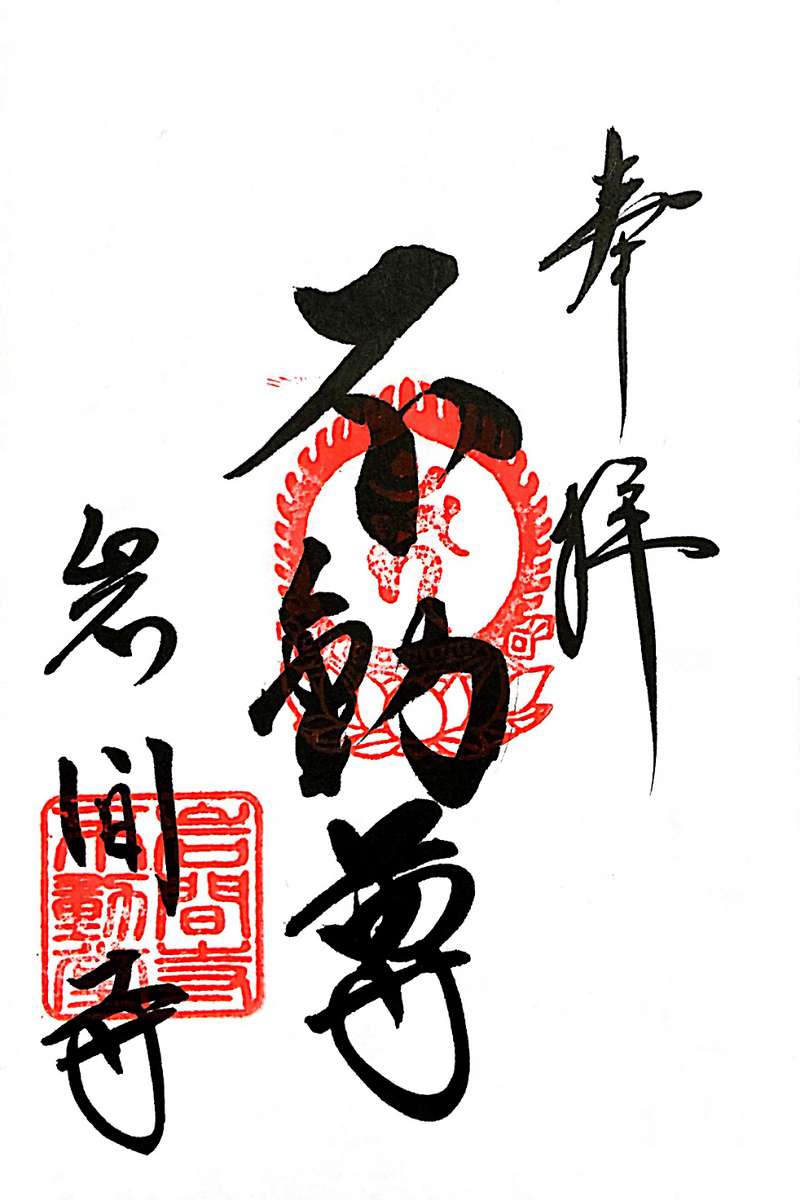 奉拝
不動尊
岩間寺
岩間寺
不動